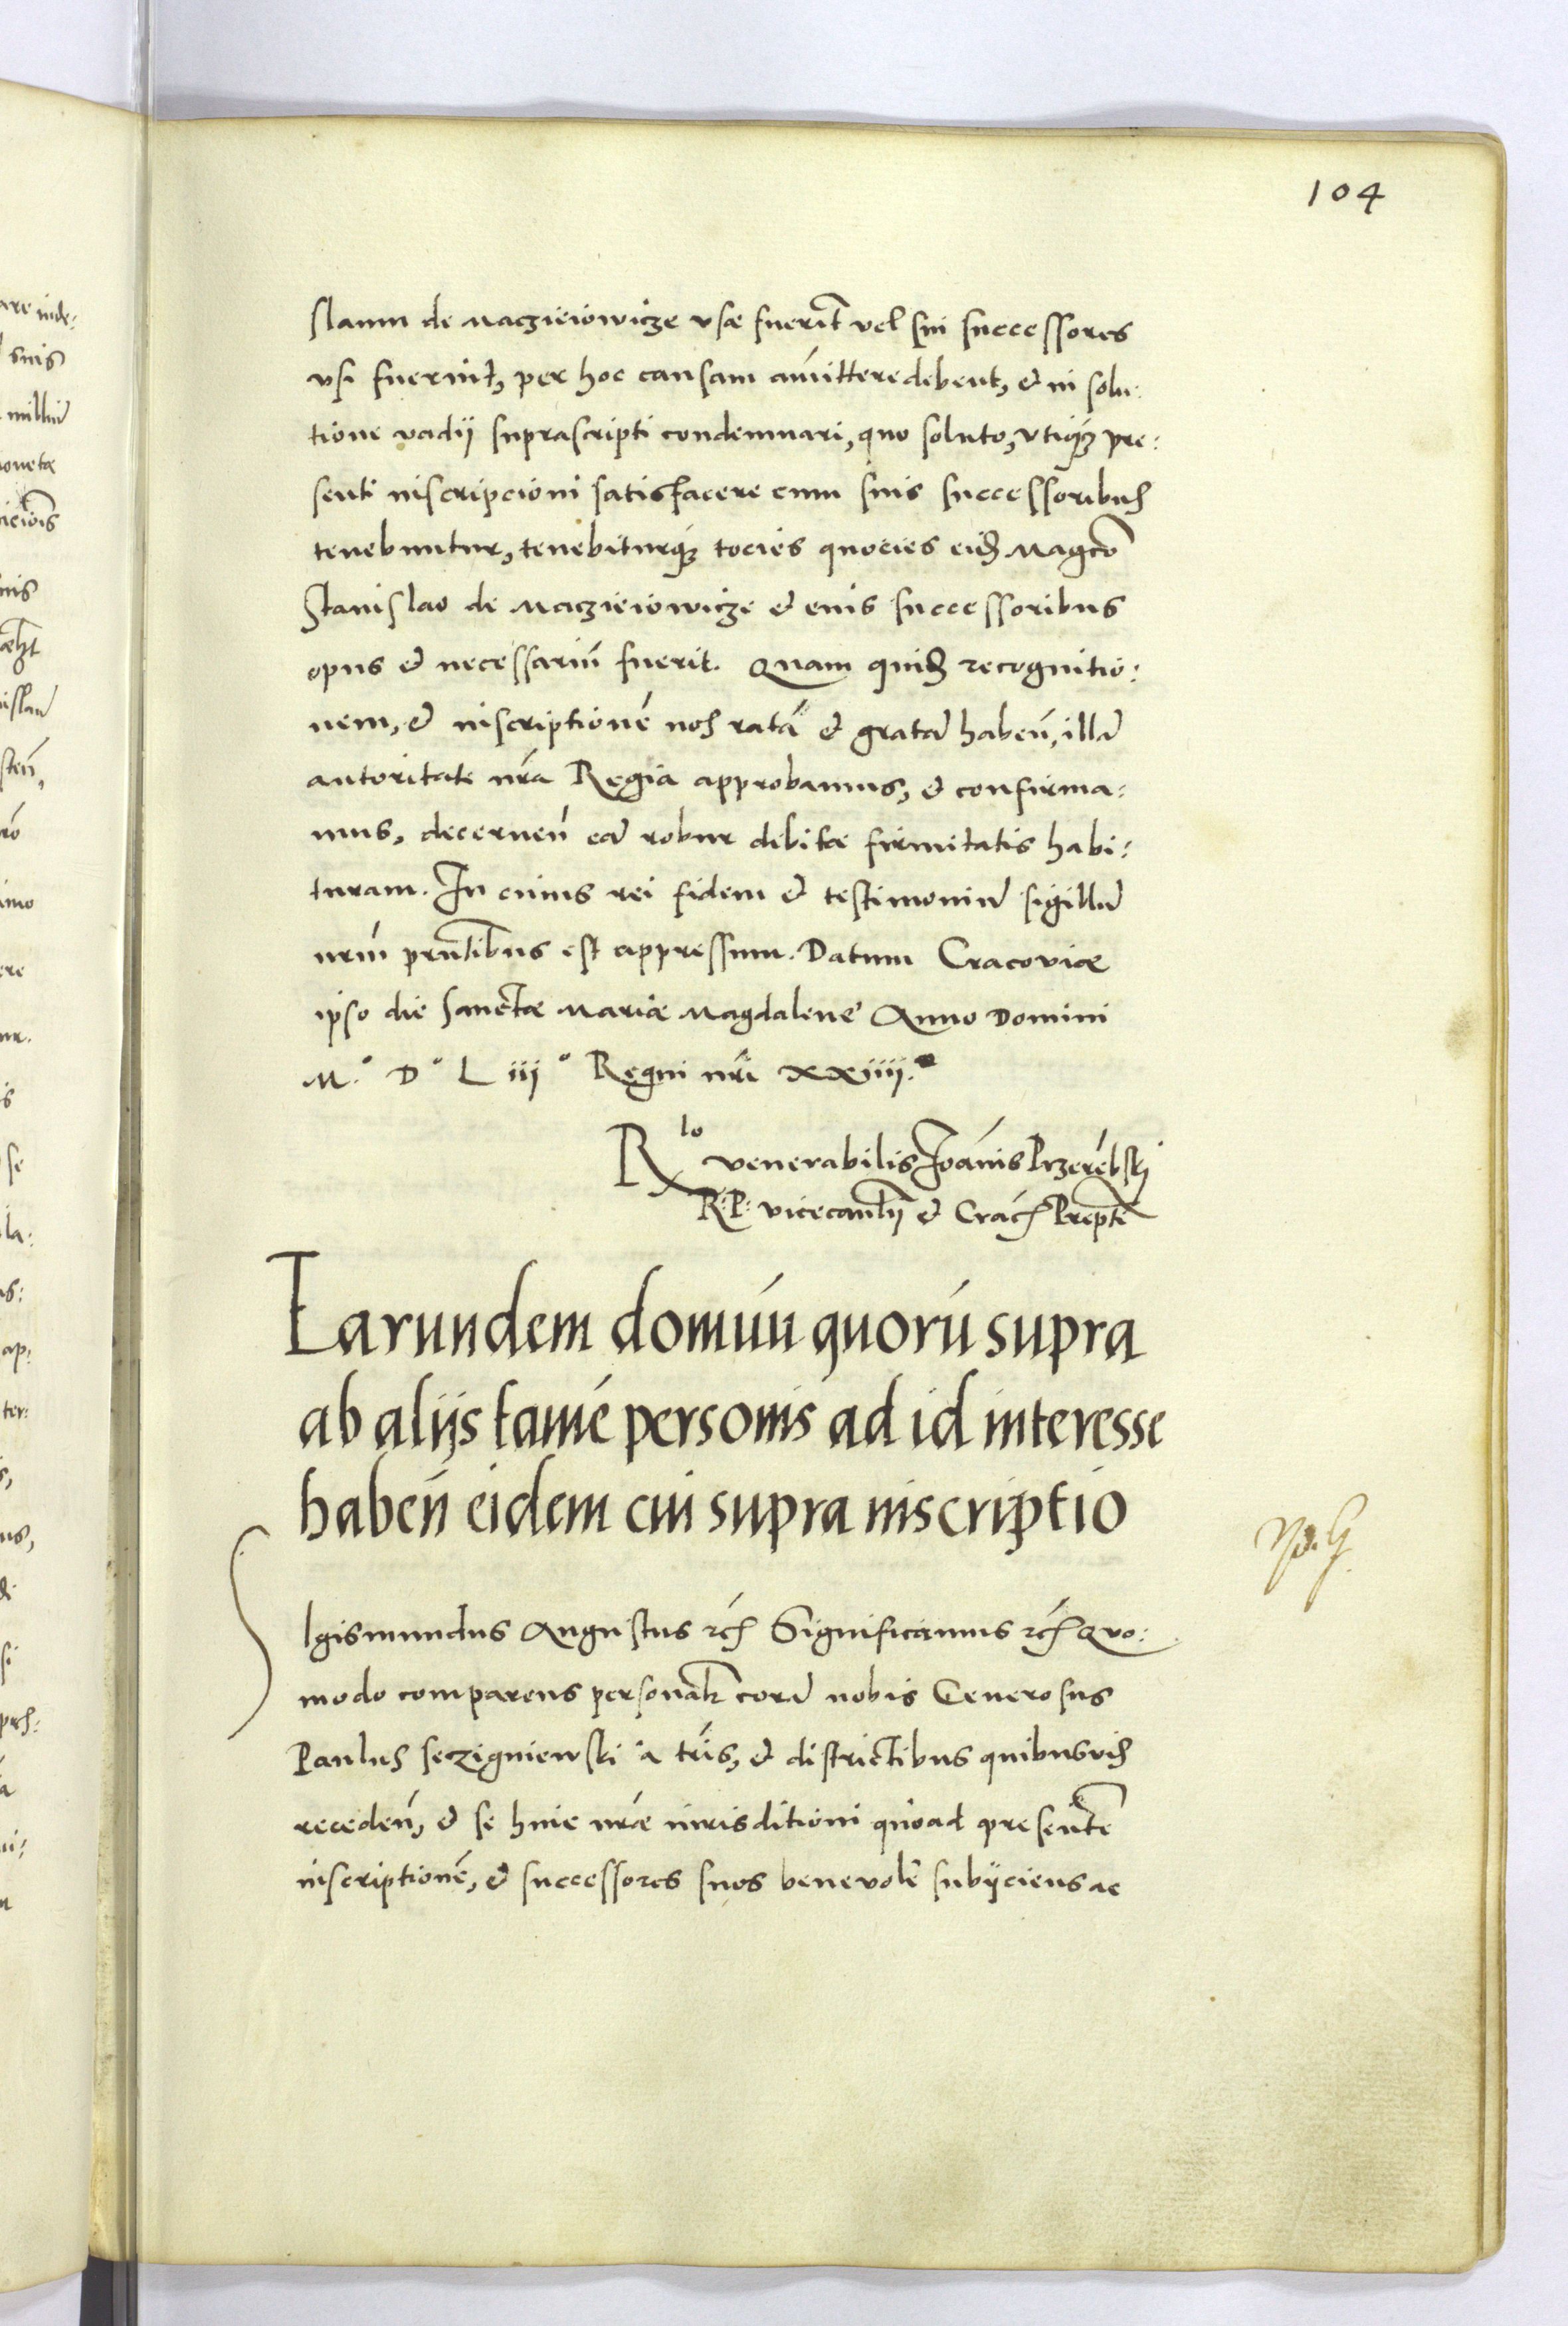 104
slaum de Maczieiowicze vsæ fuerīt vel sui successores
vsi fuerint, per hoc causam amittere debent, et in solu:
tione vadij suprascripti condemnari, quo soluto, vtiq3 pre:
senti inscripcioni satisfacere cum suis successoribus
tenebuntur, tenebiturq3 tocies quocies eid Magco
Stanislao de Maczieiowicze et euis successoribus
opus et necessariū fuerit. Quam quid recognitio:
nem, et inscriptionē nos ratā et gratā habeñ, illā
autoritate nrā Regia approbamus, et confirma:
mus, decerneñ eā robur debitæ firmitatis habi:
turam. In cuius rei fidem et testimoniū sigillū
nrm̄ prntibus est appressum. Datum Cracoviæ
ipso die Sanctæ Mariæ Magdalenę Anno Domini
M.° D° L iij° Regni nrī XXiiii.°
Rlo venerabilis Joānis Przerębski
R: P: vicecancllij et Crac̄ Prepti
Earundem domūū quorū supra
ab alijs tamē personis ad id interesse
habeñ eidem cui supra inscriptio
Igismundus Augustus rc̄ Significamus rc̄ Quo:
modo comparens personalr corā nobis Generosus
Paulus Seczigniewski a trīs, et districtibus quibusvis
recedeñ, et se huic nrǣ iurisditioni quoad presentē
inscriptionē, et successores suos benevolē subijciens ac